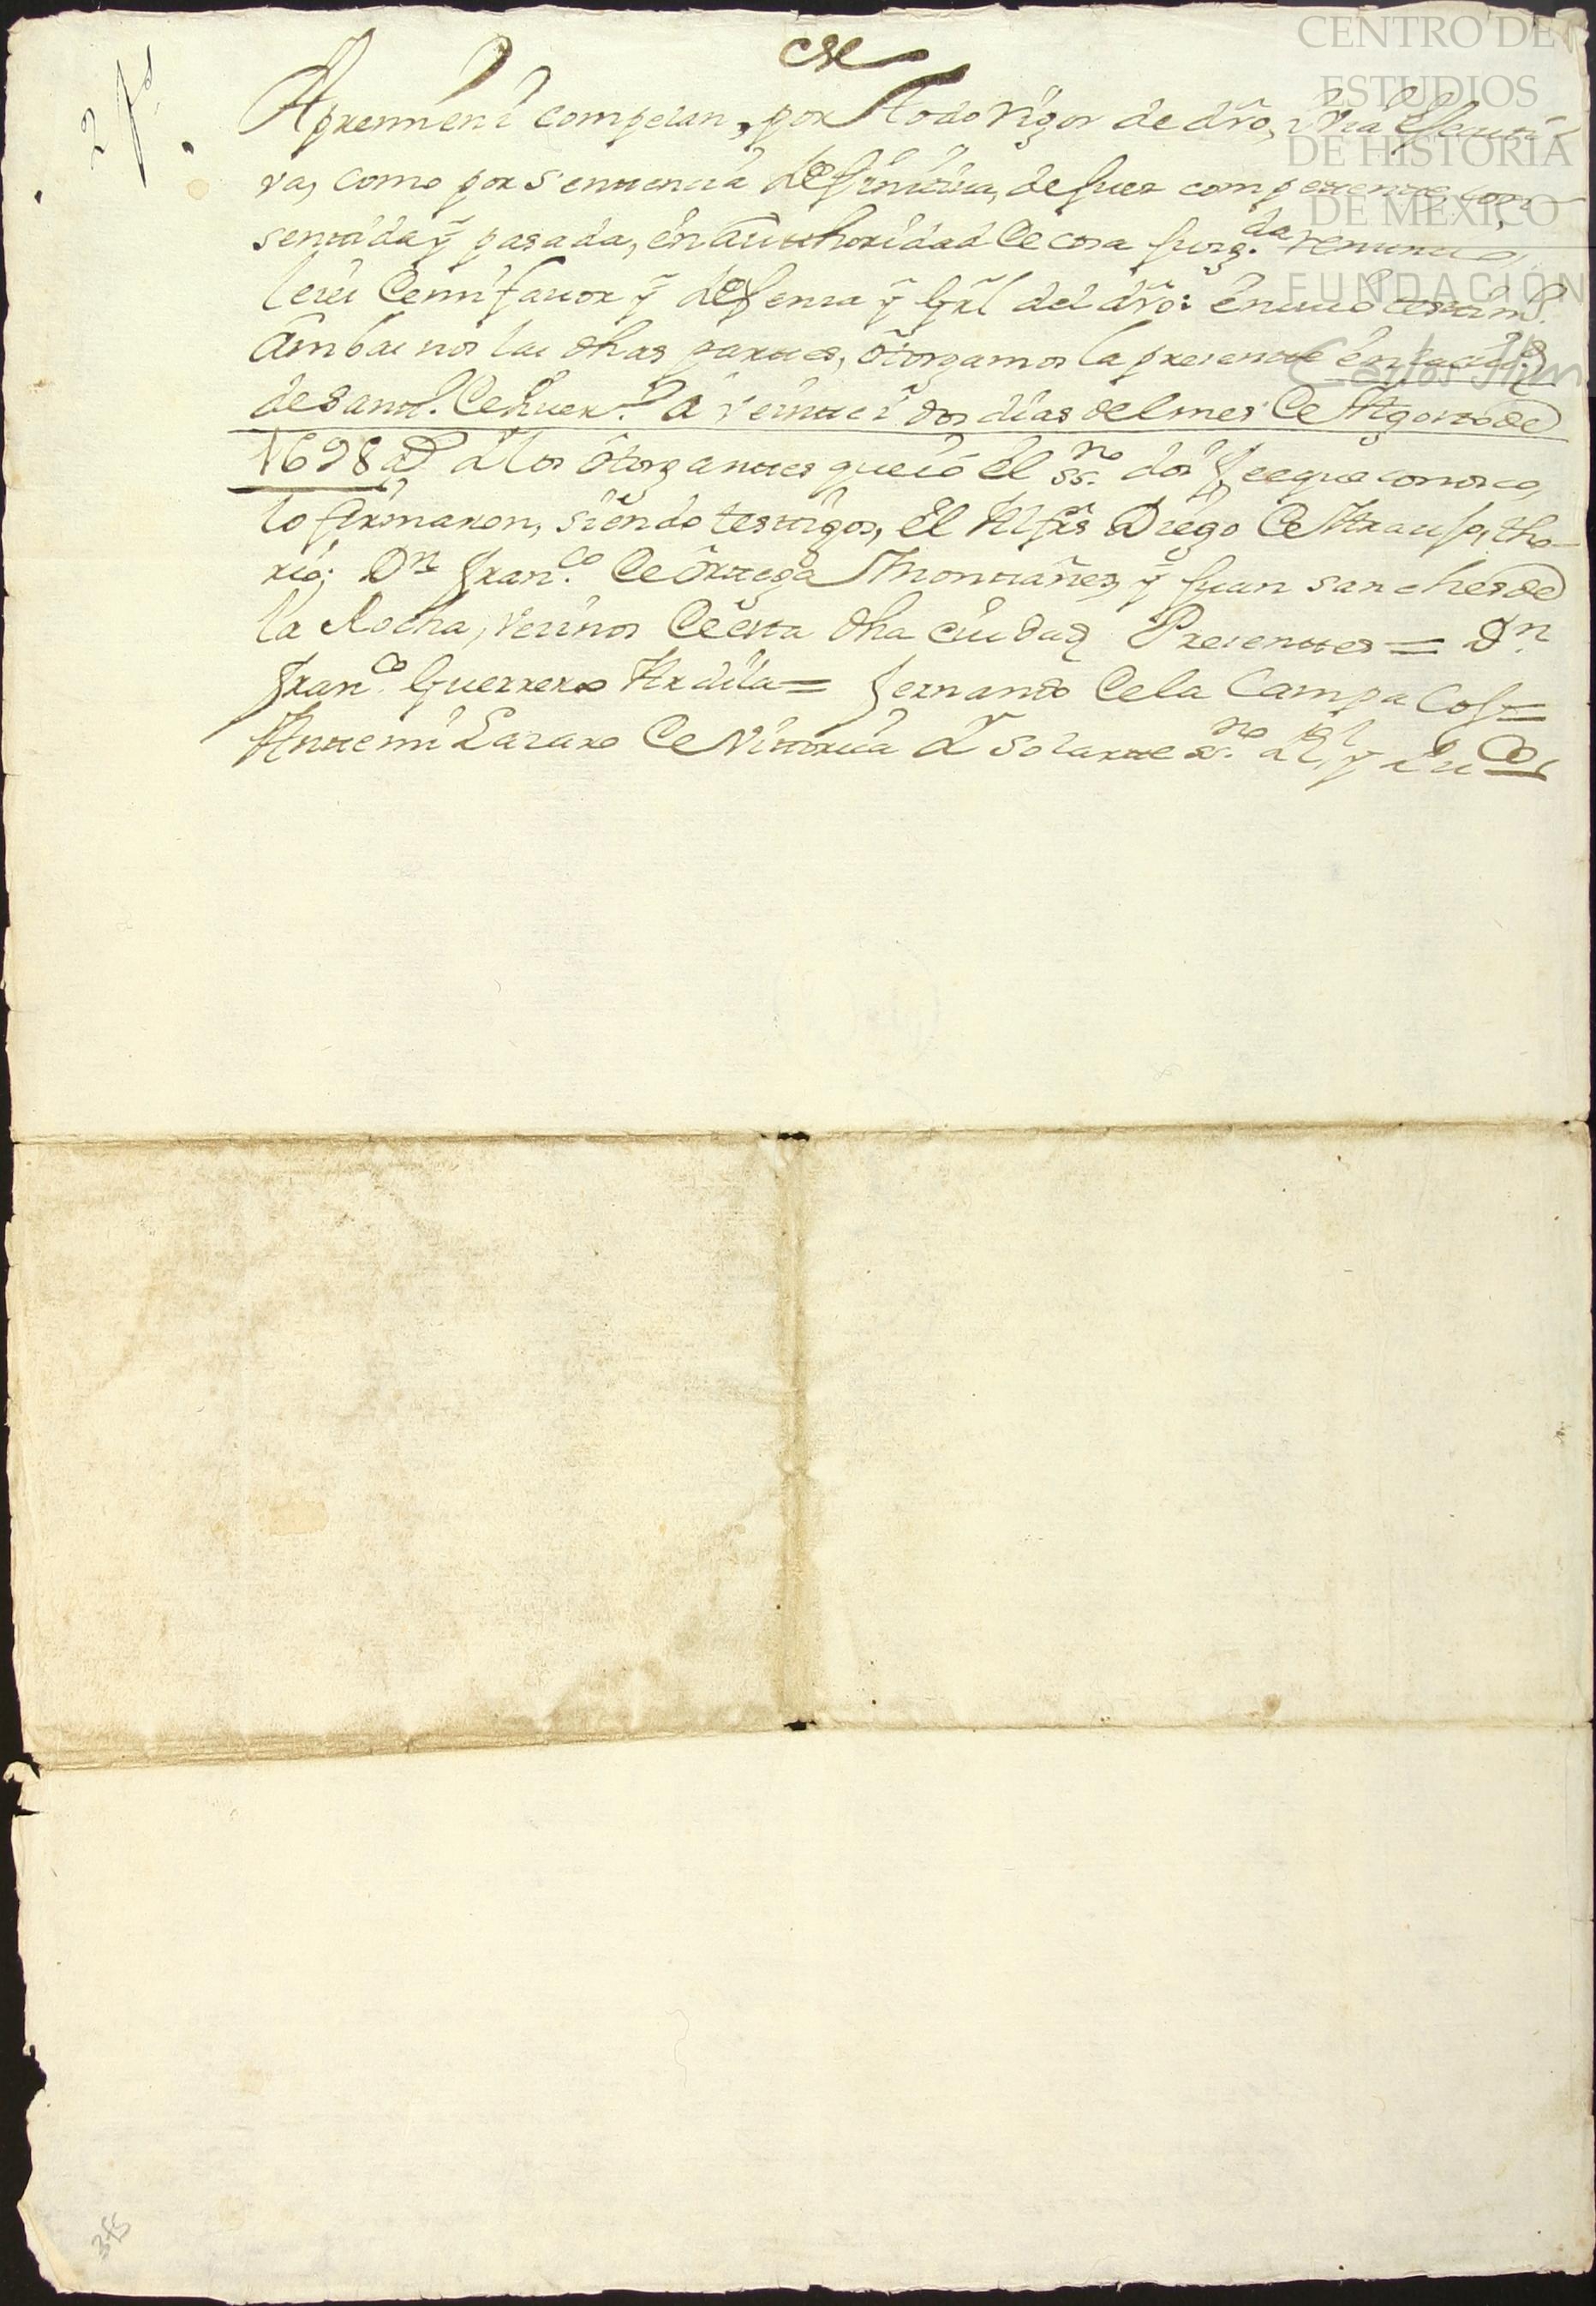 CENTRO DE
ESTUDIOS
DE HISTORIA
DE MÉXICO
FUNDACIÓN
Carlos Slim
2 f.s
Apremien i compelan, por todo rigor de dr̃o, i via Executi
va, como por sentencia definitiva, de Juez competente, con
sentida ỹ pasada, en authoridad de cosa Juzg.da renuncio,
leies de mi favor ỹ defensa ỹ Gr̃l del dr̃o: en cuio testim.o
Ambas nos las dhas partes, otorgamos la presente en la ciu.d
de sant. de quer.o a veinte i dos dias del mes de Agosto de
1698 a.s a los otorgantes que io el ss.no doi fee que conosco,
lo firmaron, siendo testigos, el Alfrs Diego de Araujo, the
rio; Dn Fran.co de Ortega Montañez, ỹ Juan sanches de
la Rocha, vecinos de esta dha ciudad Presentes = Dn
Fran.co Guerrero Ardila = Fernando de la Campa Cos =
Ante mi Lazaro de Vitoria Solarte ss.no Rl, y Pu.co
3fs